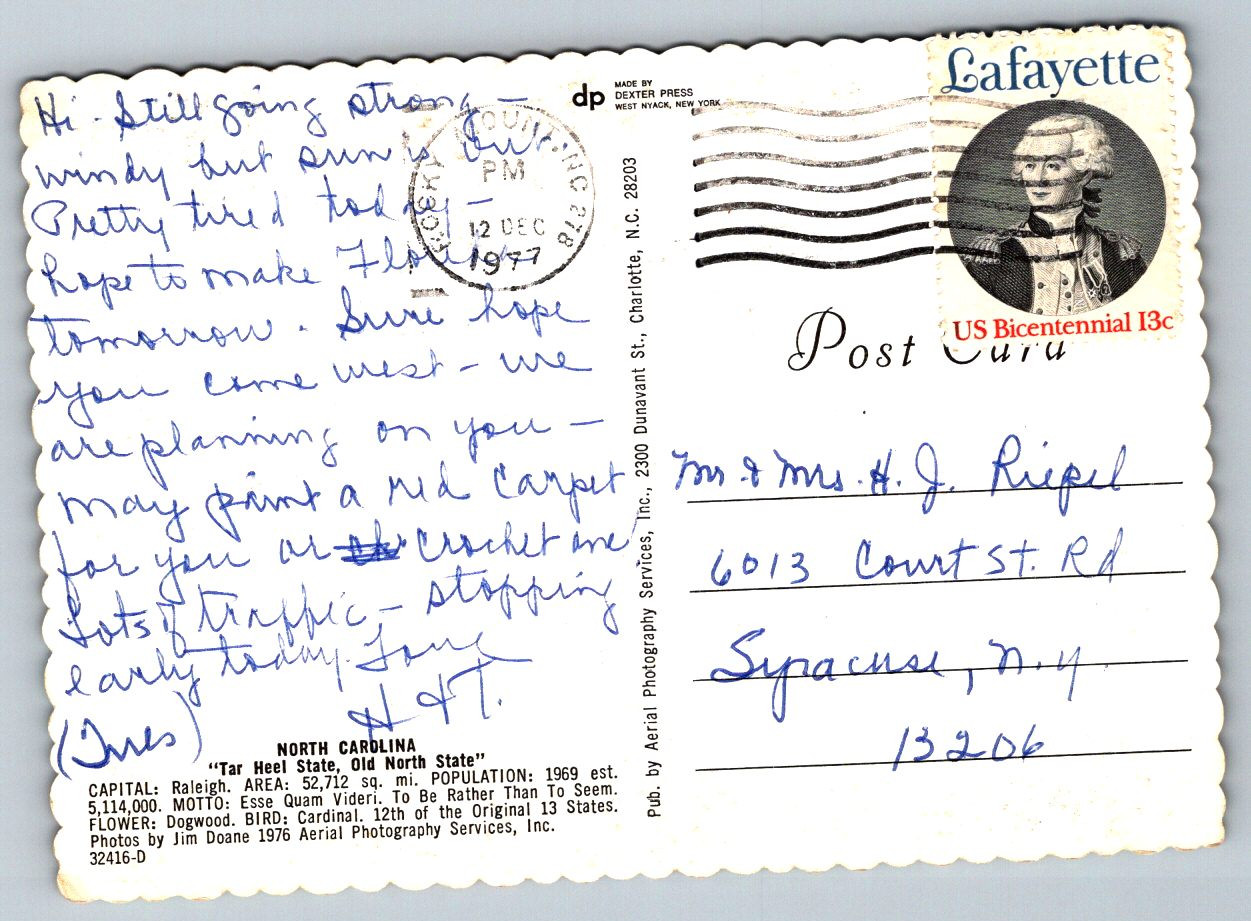 Hi - Still going strong -
windy but sun is out.
Pretty tired today -
hope to make Florida
tomorrow. Sure hope
you come west - we
are planning on you -
may paint a red carpet
for you or crochet one
Lots of traffic - stopping
early today. Love
H + T.
(Tues)
NORTH CAROLINA
“Tar Heel State, Old North State”
CAPITAL: Raleigh. AREA: 52,712 sq. mi. POPULATION: 1969 est.
5,114,000. MOTTO: Esse Quam Videri. To Be Rather Than To Seem.
FLOWER: Dogwood. BIRD: Cardinal. 12th of the Original 13 States.
Photos by Jim Doane 1976 Aerial Photography Services, Inc.
32416-D
dp
MADE BY
DEXTER PRESS
WEST NYACK, NEW YORK
NC 278
PM
12 DEC
1977
Pub. by Aerial Photography Services, Inc., 2300 Dunavant St., Charlotte, N.C. 28203
Lafayette
US Bicentennial 13c
Post Card
Mr & Mrs. H. J. Riepel
6013 Court St. Rd
Syracuse, N.Y.
13206